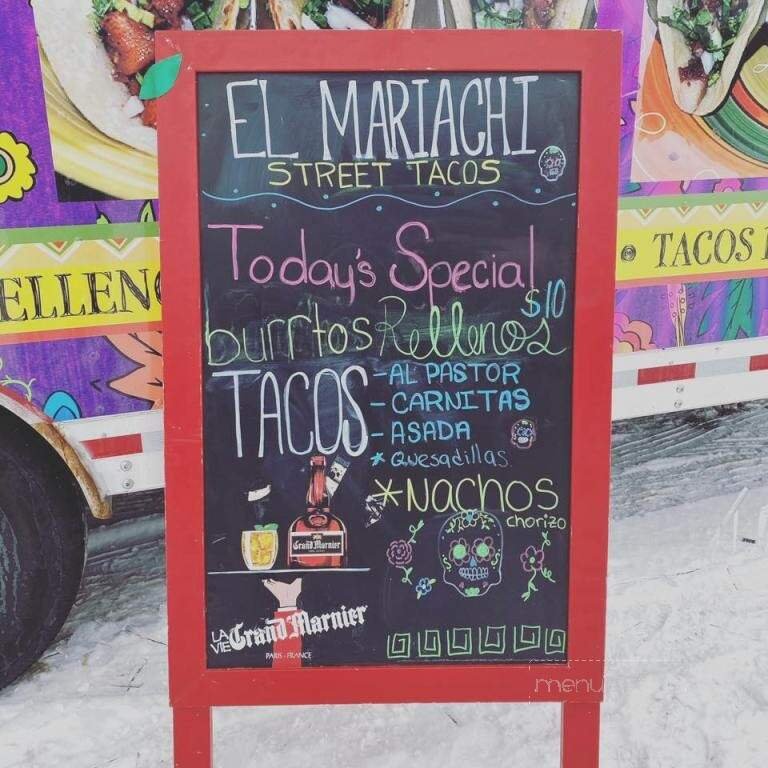 EL MARIACHI
STREET TACOS
Today's Special
$10
burritos Rellenos
TACOS
-AL PASTOR
-CARNITAS
-ASADA
* Quesadillas.
*NACHOS
chorizo
Grand Marnier
LA VIE Grand Marnier
PARIS-FRANCE
ELLENO
TACOS
menu